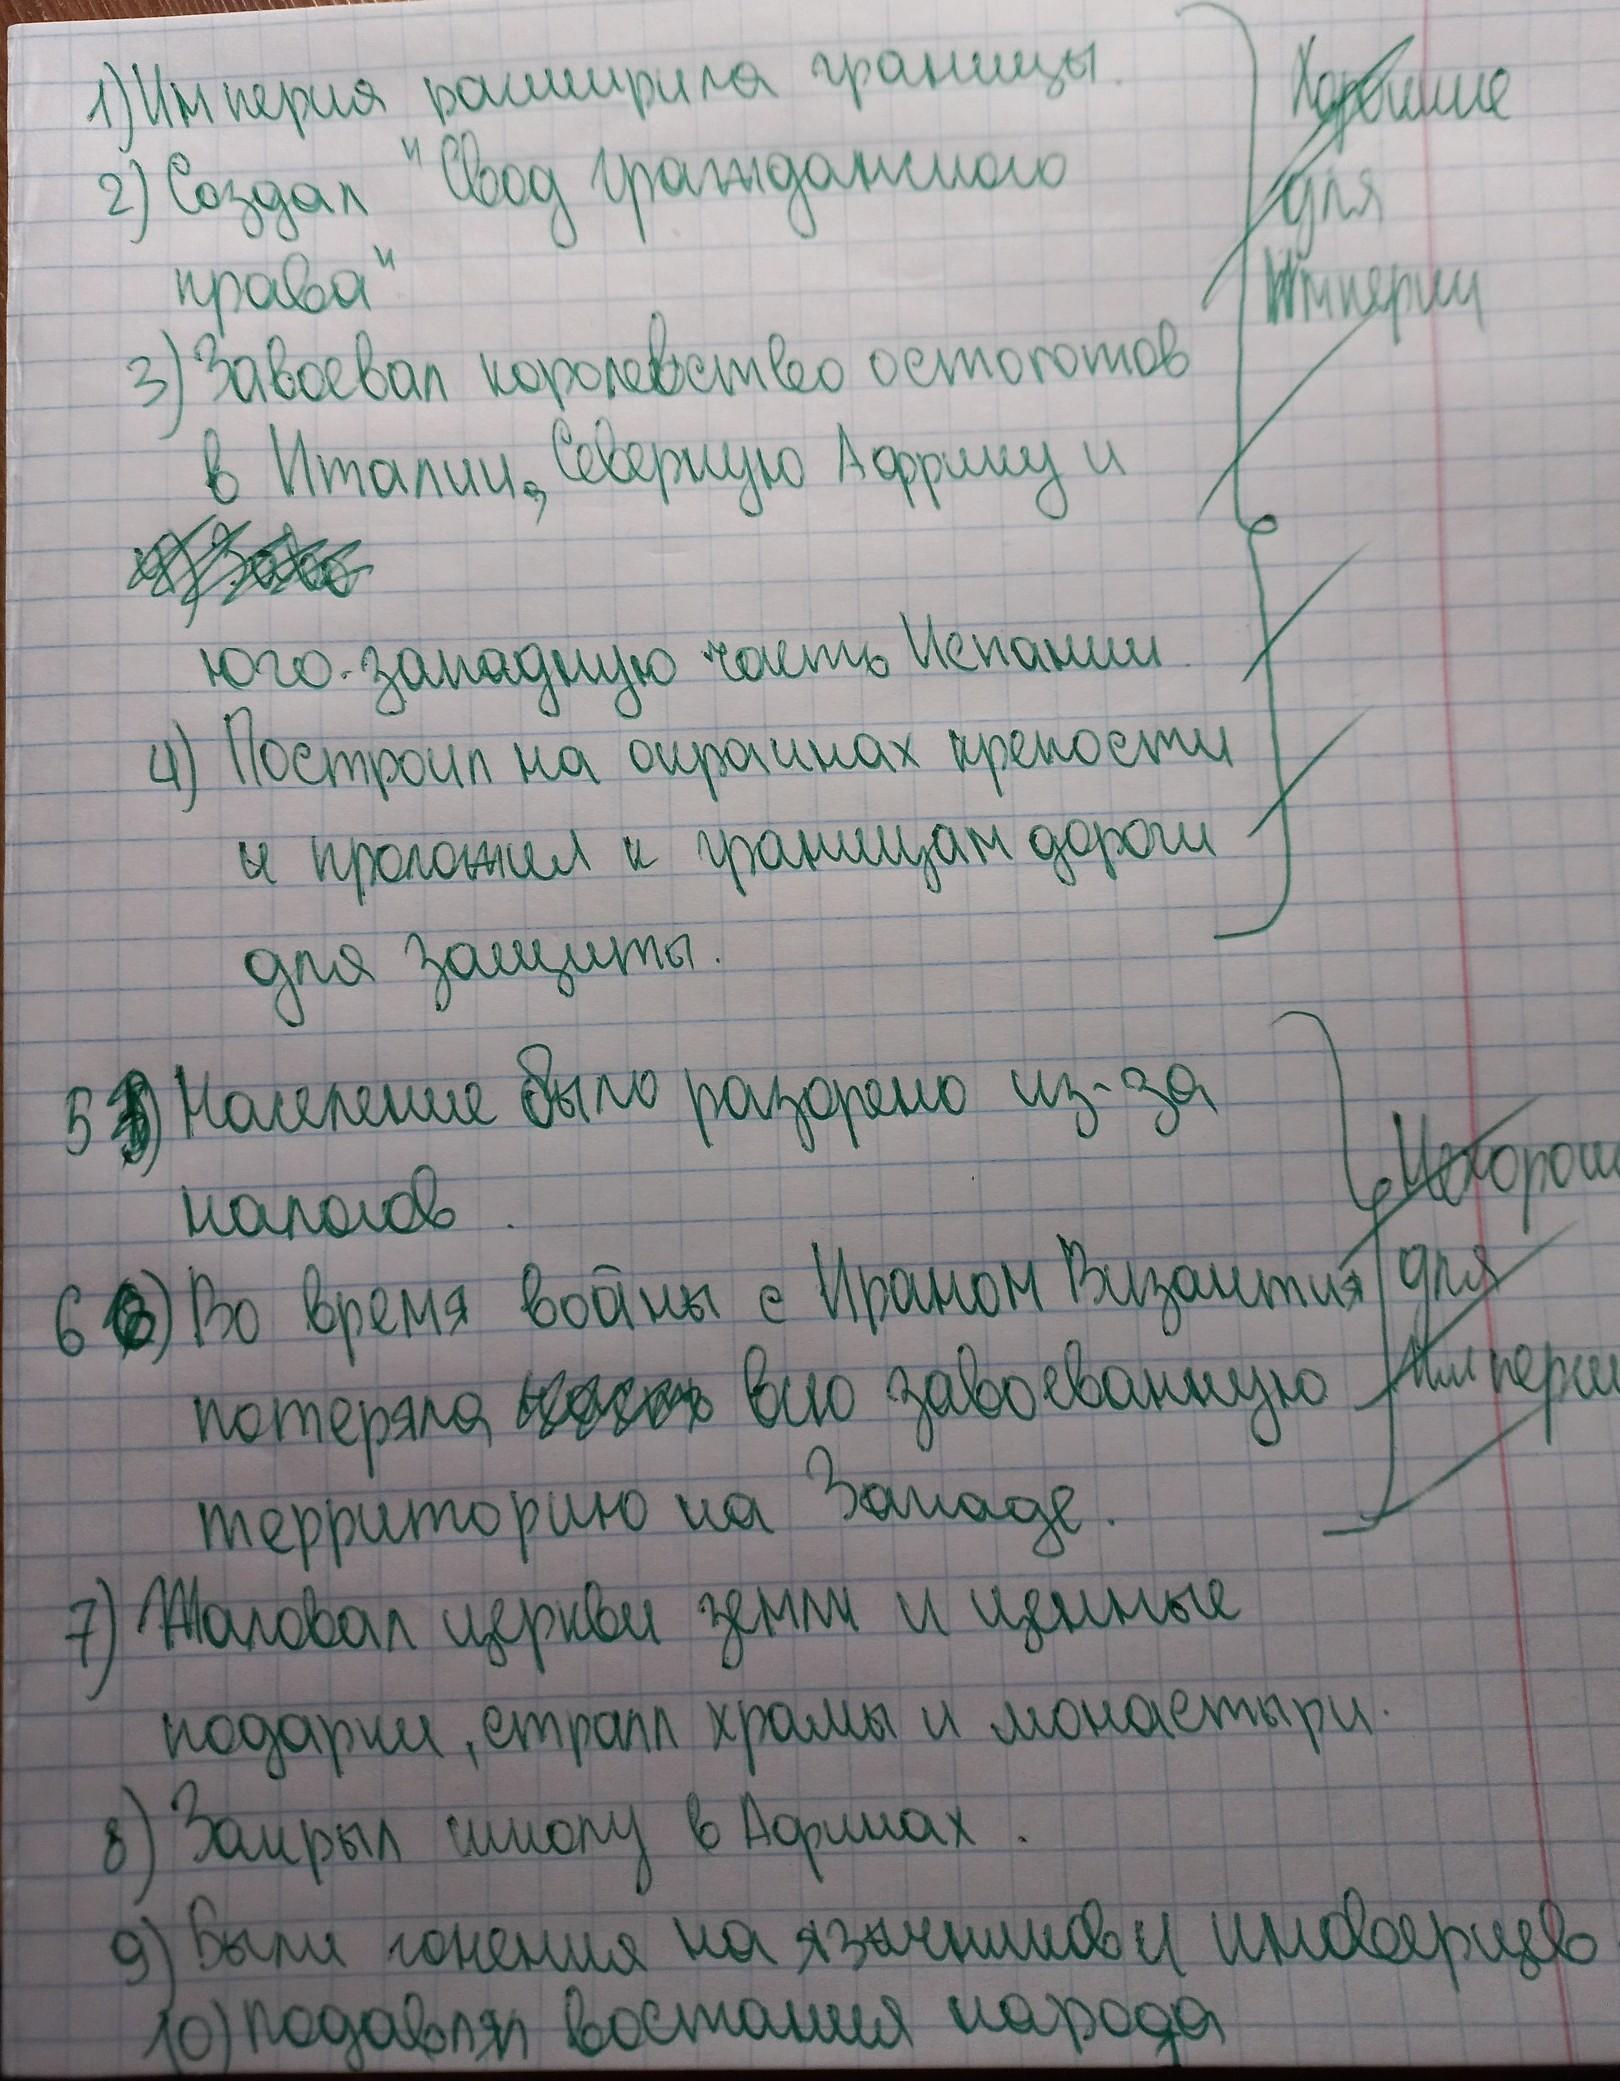 1) Империя расширила границы.
2) Создал "Свод гражданского
права"
3) Завоевал королевство остготов
в Италии, Северную Африку и
юго-западную часть Испании.
4) Построил на окраинах крепости
и проложил к границам дороги
для защиты.
Хорошие
для
Империи
5) Население было разорено из-за
налогов.
6) Во время войны с Ираном Византия
потеряла всю завоеванную
территорию на Западе.
Нехорош
для
Импери
7) Жаловал церкви земли и ценные
подарки, страил храмы и монастыри.
8) Закрыл школу в Афинах.
9) Были гонения на язычников и иноверцев
10) подавлял востания народа